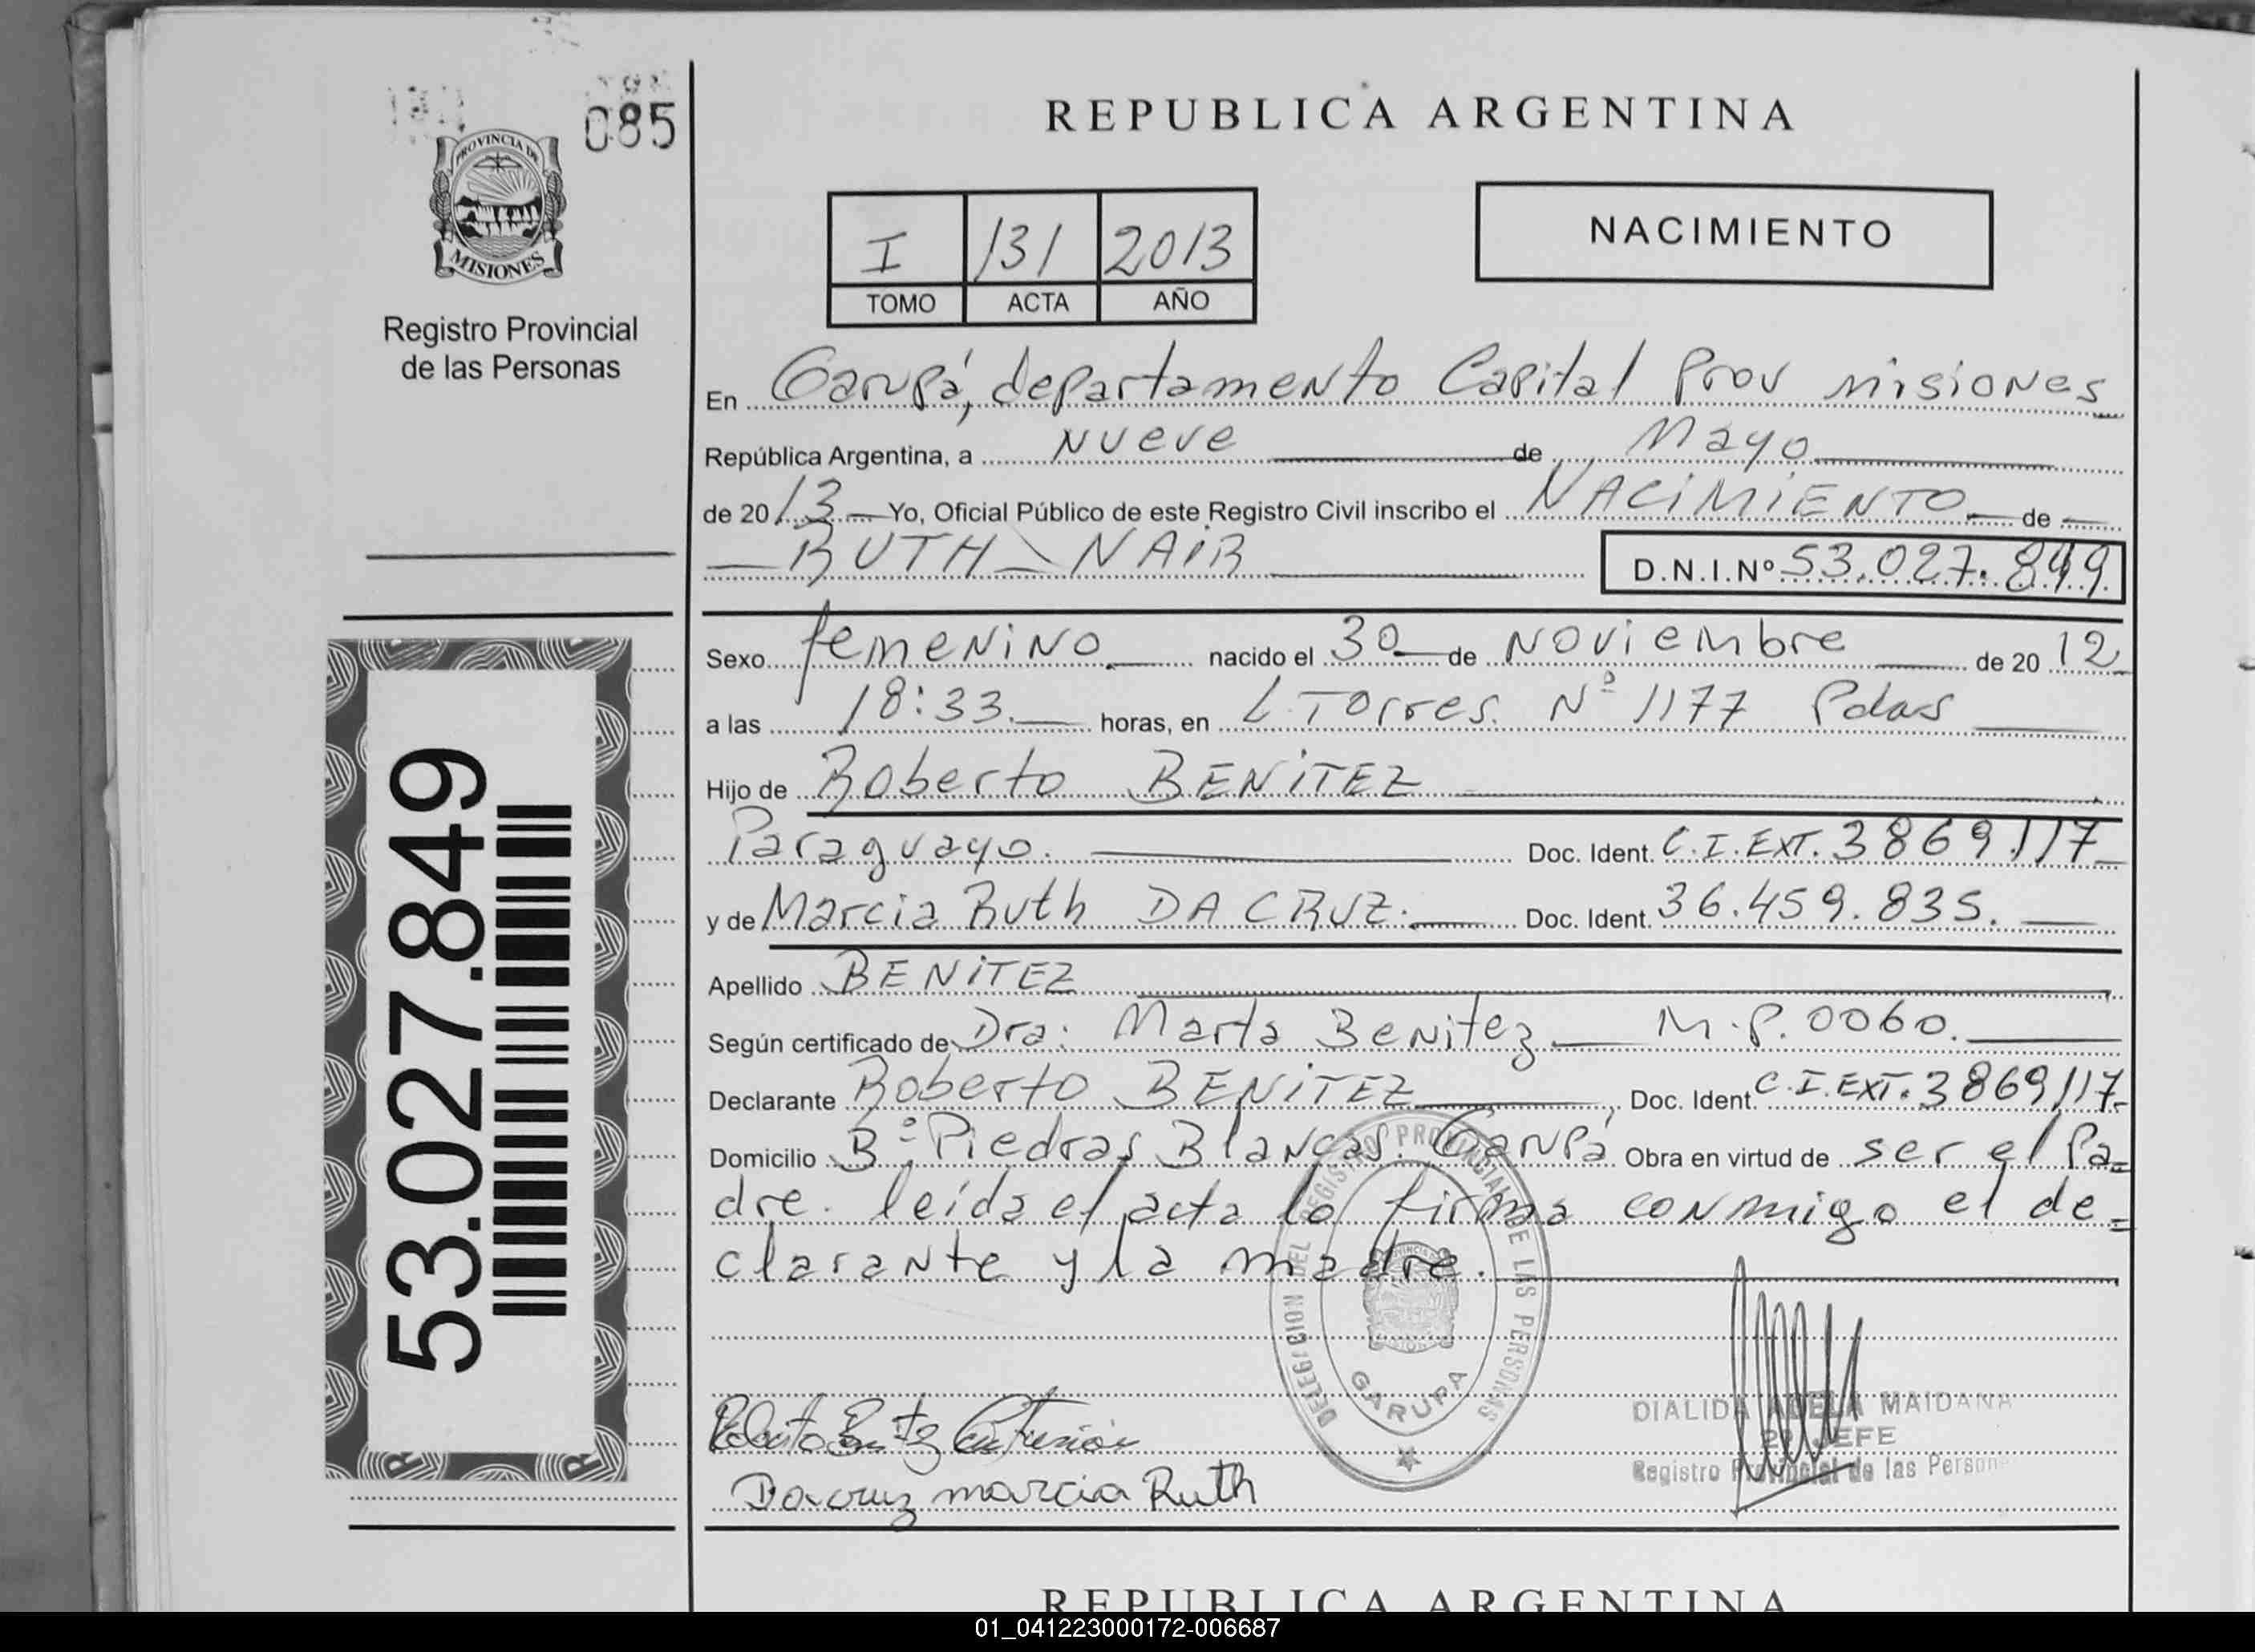 085
PROVINCIA DE
MISIONES
Registro Provincial
de las Personas
53.027.849
REPUBLICA ARGENTINA
I 131 2013
TOMO ACTA AÑO
NACIMIENTO
En Garupá, departamento Capital Prov misiones
República Argentina, a nueve de Mayo
de 2013 Yo, Oficial Público de este Registro Civil inscribo el NACIMIENTO de
RUTH NAIR D.N.I.Nº 53.027.849
Sexo femenino nacido el 30 de noviembre de 2012
a las 18:33 horas, en L. Torres. Nº 1177 Pdas
Hijo de Roberto BENITEZ
Paraguayo. Doc. Ident. C.I.EXT. 3869117
y de Marcia Ruth DA CRUZ. Doc. Ident. 36.459.835.
Apellido BENITEZ
Según certificado de Dra: Marta Benitez M.P. 0060.
Declarante Roberto BENITEZ Doc. Ident. C.I.EXT. 3869117
Domicilio Bº Piedras Blancas. Garupá Obra en virtud de ser el Pa=
dre. leída el acta lo firma conmigo el de=
clarante y la madre.
DELEGACION DEL REGISTRO PROVINCIAL DE LAS PERSONAS
GARUPA
Roberto Benitez
Dacruz marcia Ruth
DIALIDA ADELA MAIDANA
2º JEFE
Registro Provincial de las Persona
REPUBLICA ARGENTINA
01_041223000172-006687